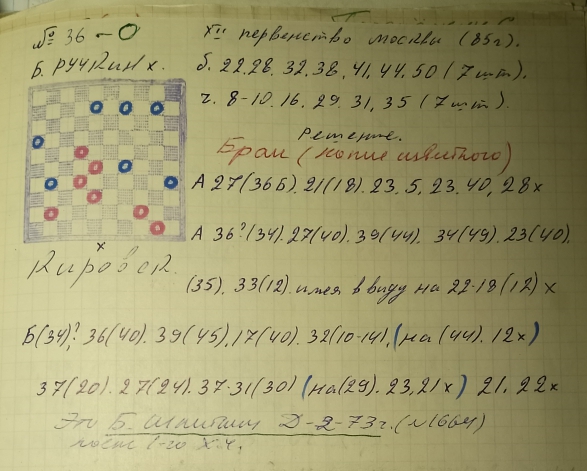 № 36 – О
XII первенство Москвы (85г).
Б. Ручкин х.
б. 22.28. 32. 38. 41. 44. 50 (7шт).
ч. 8-10. 16. 29. 31. 35 (7шт).
Решение.
Брак (копие известного)
А 27(36Б). 21(18). 23. 5. 23. 40, 28х
А 36?(34). 27(40). 39(44). 34(49). 23(40).
Кировск.
(35). 33(12). имея в виду на 22-18(12)х
Б(34)? 36(40). 39(45), 17(40). 32(10-14), (на (44). 12х)
37(20). 27(24). 37-31(30) (на(29). 23,21х) 21. 22х
Это Б. Шпитцин Д-2-73г. (№1664)
после 1-го х.ч.